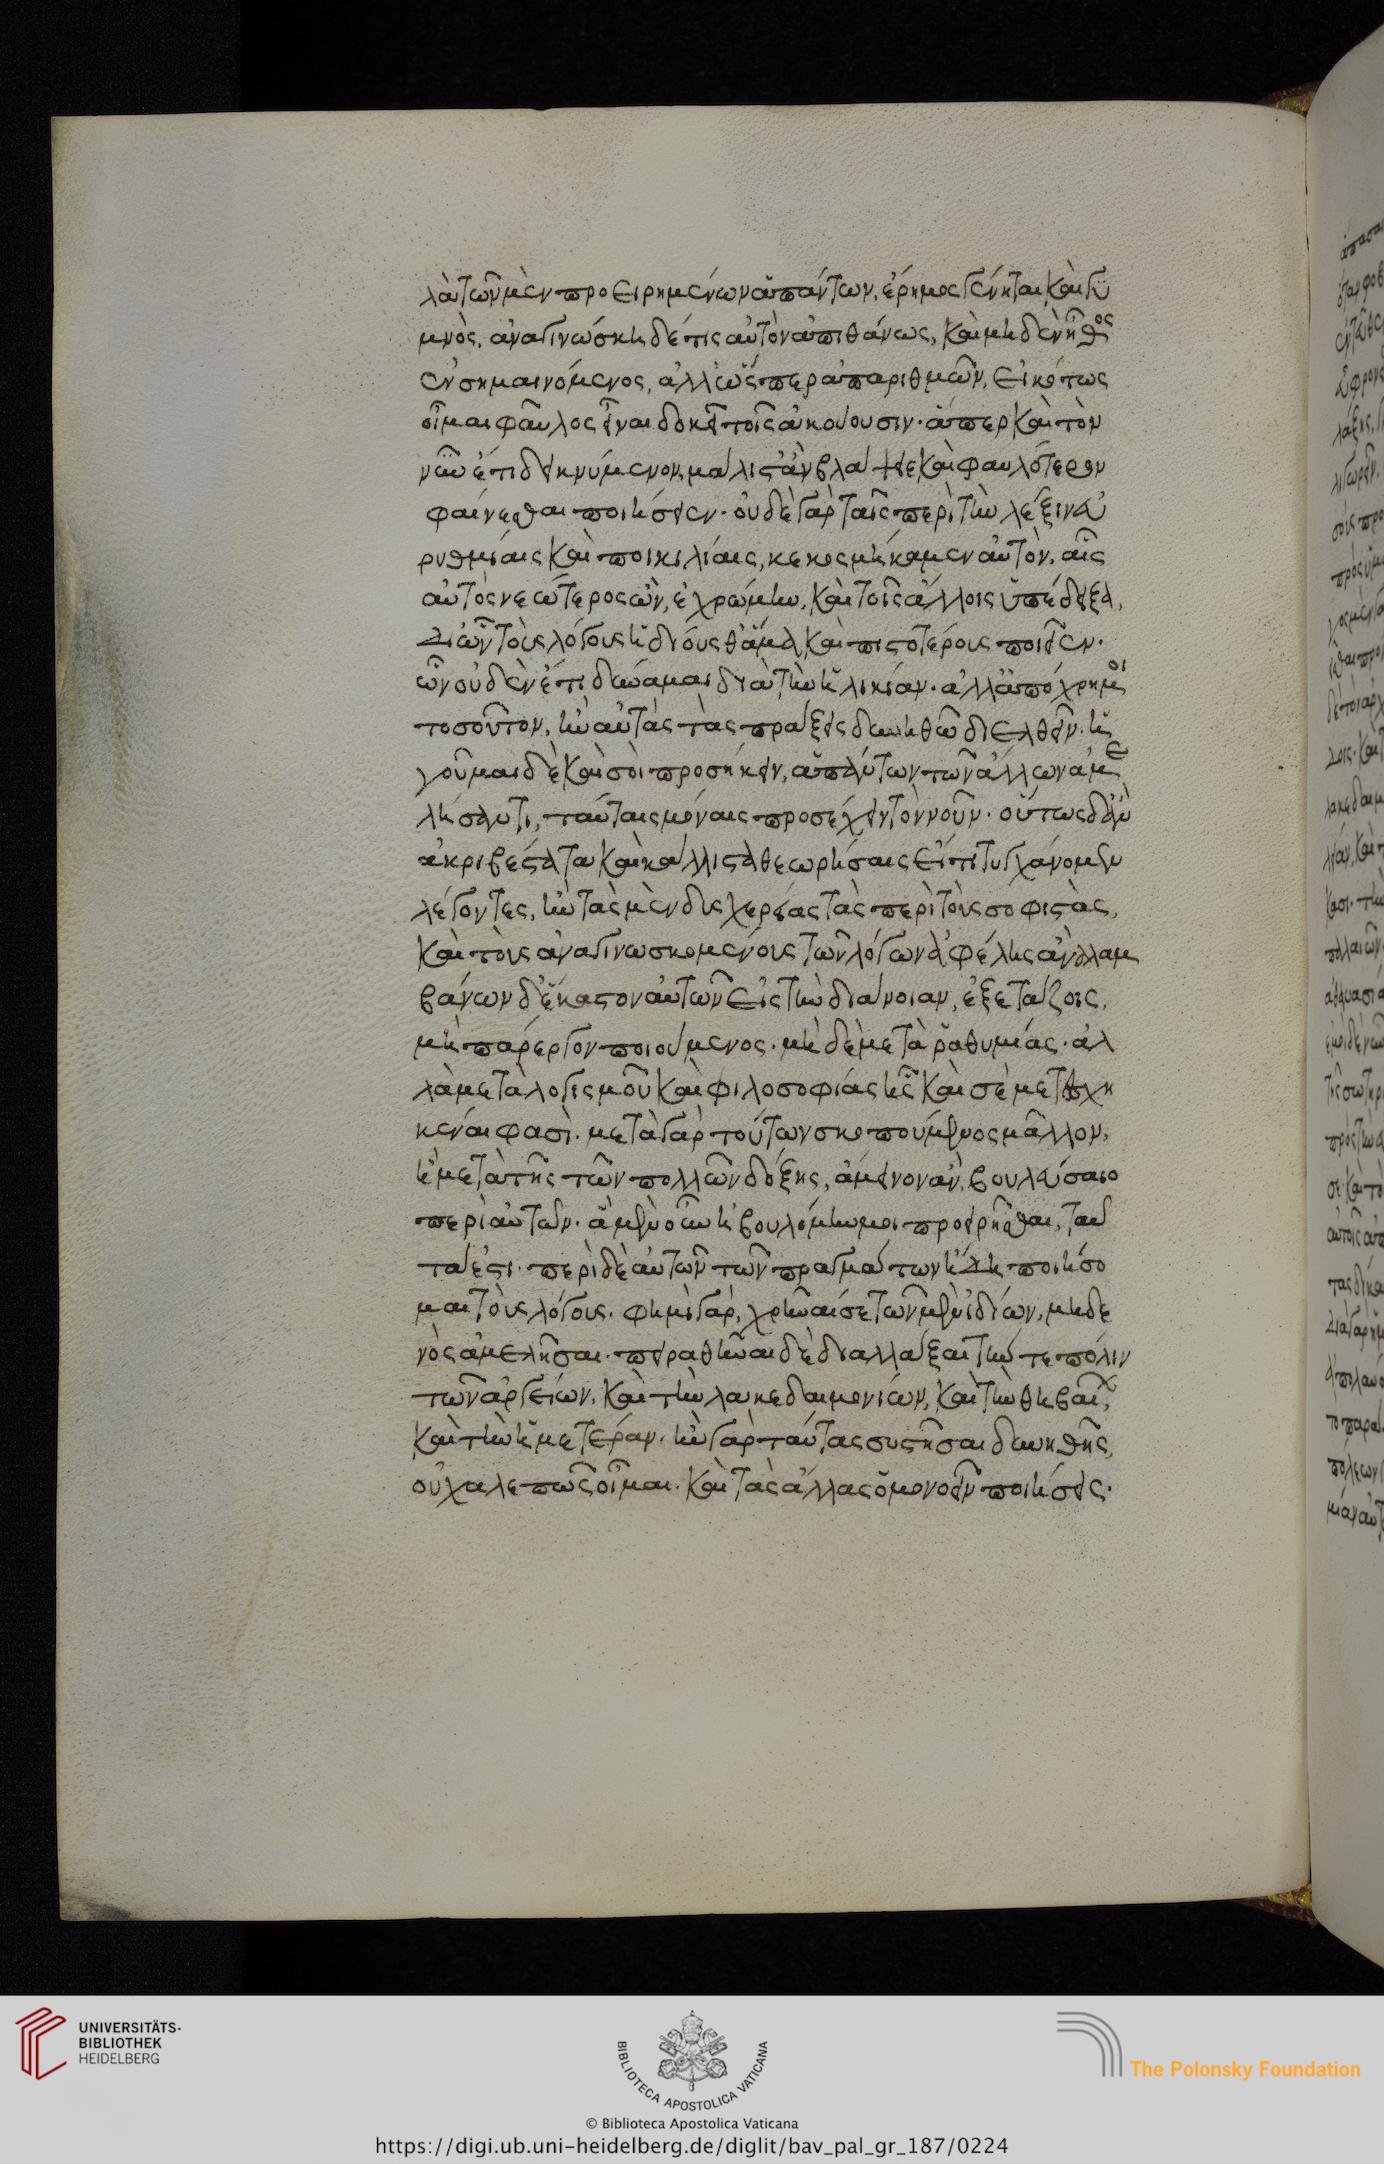 λὰ τῶν μὲν προειρημένων ἁπάντων, ἔρημος γένηται καὶ γυ
μνὸς, ἀναγινώσκη δέ τις αὐτὸν ἀπιθάνως, καὶ μηδὲν ἦθος
ἐνσημαινόμενος, ἀλλ' ὥσπερ ἀπαριθμῶν, εἰκότως
οἶμαι φαῦλος εἶναι δοκεῖ τοῖς ἀκούουσιν· ἅπερ καὶ τὸν
νῦν ἐπιδεικνύμενον, μάλιστ' ἂν βλάψειε καὶ φαυλότερον
φαίνεσθαι ποιήσειεν· οὐδὲ γὰρ ταῖς περὶ τὴν λέξιν εὐ
ρυθμίαις καὶ ποικιλίαις, κεκοσμήκαμεν αὐτὸν, αἷς
αὐτὸς νεώτερος ὢν, ἐχρώμην, καὶ τοῖς ἄλλοις ὑπέδειξα,
δι' ὧν τοὺς λόγους ἡδίους θ' ἅμα καὶ πιστοτέρους ποιεῖεν·
ὧν οὐδὲν ἔτι δύναμαι διὰ τὴν ἡλικίαν· ἀλλ' ἀπόχρη μοι
τοσοῦτον, ἢν αὐτὰς τὰς πράξεις δυνηθῶ διελθεῖν· ἡ
γοῦμαι δὲ καὶ σοὶ προσήκειν, ἁπάντων τῶν ἄλλων ἀμε
λήσαντι, ταύταις μόναις προσέχειν τὸν νοῦν· οὕτως δ' ἂν
ἀκριβέστατα καὶ κάλλιστα θεωρήσαις εἴ τι τυγχάνομεν
λέγοντες, ἢν τὰς μὲν δυσχερείας τὰς περὶ τοὺς σοφιστὰς,
καὶ τοὺς ἀναγινωσκομένους τῶν λόγων ἀφέλης ἀναλαμ
βάνων δ' ἕκαστον αὐτῶν εἰς τὴν διάνοιαν, ἐξετάζοις,
μὴ πάρεργον ποιούμενος· μηδὲ μετὰ ῥαθυμίας· ἀλ
λὰ μετὰ λογισμοῦ καὶ φιλοσοφίας ἧς καὶ σὲ μετεσχη
κέναι φασὶ· μετὰ γὰρ τούτων σκοπούμενος μᾶλλον,
ἢ μετὰ τῆς τῶν πολλῶν δόξης, ἄμεινον ἂν βουλεύσαιο
περὶ αὐτῶν· ἃ μὲν οὖν ἠβουλόμην μοι προειρῆσθαι, ταῦ
τά ἐστι· περὶ δὲ αὐτῶν τῶν πραγμάτων ἤδη ποιήσο
μαι τοὺς λόγους· φημὶ γὰρ, χρῆναί σε τῶν μὲν ἰδίων, μηδε
νὸς ἀμελῆσαι· πειραθῆναι δὲ διαλλάξαι τήν τε πόλιν
τῶν ἀργείων, καὶ τὴν λακεδαιμονίων, καὶ τὴν θηβαίων,
καὶ τὴν ἡμετέραν· ἢν γὰρ ταύτας συστῆσαι δυνηθῆς,
οὐ χαλεπῶς οἶμαι· καὶ τὰς ἄλλας ὁμονοεῖν ποιήσεις·
UNIVERSITÄTS-
BIBLIOTHEK
HEIDELBERG
BIBLIOTECA APOSTOLICA VATICANA
The Polonsky Foundation
© Biblioteca Apostolica Vaticana
https://digi.ub.uni-heidelberg.de/diglit/bav_pal_gr_187/0224